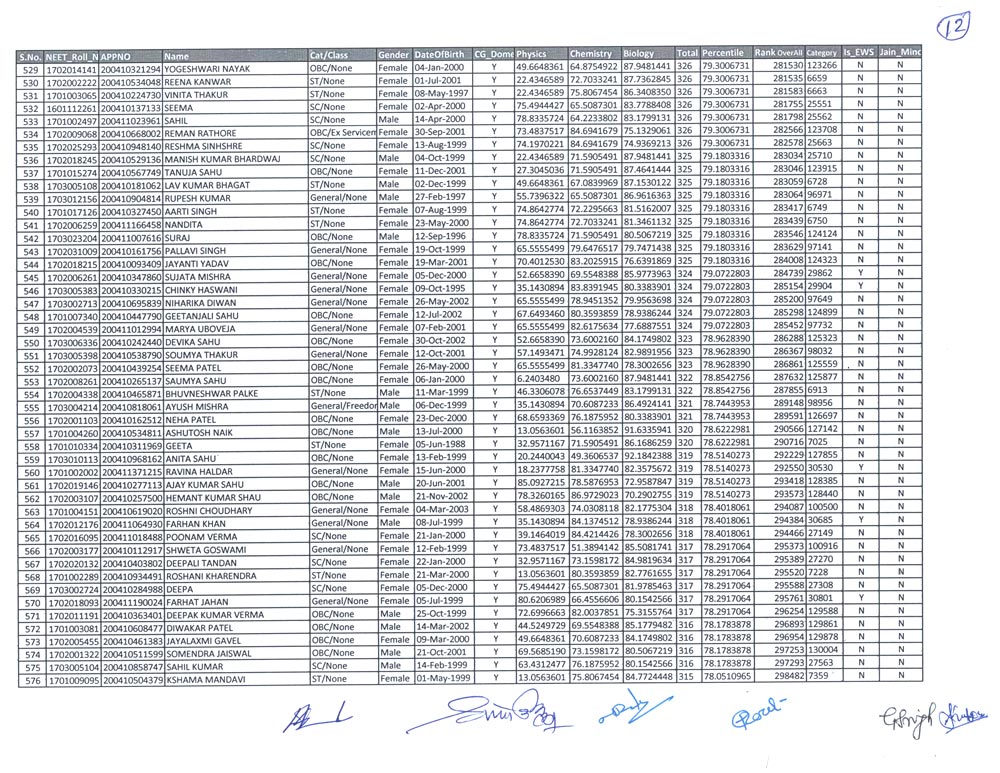 12
S.No. NEET_Roll_N APPNO Name Cat/Class Gender DateOfBirth CG_Dome Physics Chemistry Biology Total Percentile Rank OverAll Category Is_EWS Jain_Minc
529 1702014141 200410321294 YOGESHWARI NAYAK OBC/None Female 04-Jan-2000 Y 49.6648361 64.8754922 87.9481441 326 79.3006731 281530 123266 N N
530 1702002222 200410534048 REENA KANWAR ST/None Female 01-Jul-2001 Y 22.4346589 72.7033241 87.7362845 326 79.3006731 281535 6659 N N
531 1701003065 200410224730 VINITA THAKUR ST/None Female 08-May-1997 Y 22.4346589 75.8067454 86.3408350 326 79.3006731 281583 6663 N N
532 1601112261 200410137133 SEEMA SC/None Female 02-Apr-2000 Y 75.4944427 65.5087301 83.7788408 326 79.3006731 281755 25551 N N
533 1701002497 200411023961 SAHIL SC/None Male 14-Apr-2000 Y 78.8335724 64.2233802 83.1799131 326 79.3006731 281798 25562 N N
534 1702009068 200410668002 REMAN RATHORE OBC/Ex Servicem Female 30-Sep-2001 Y 73.4837517 84.6941679 75.1329061 326 79.3006731 282566 123708 N N
535 1702025293 200410948140 RESHMA SINHSHRE SC/None Female 13-Aug-1999 Y 74.1970221 84.6941679 74.9369213 326 79.3006731 282578 25663 N N
536 1702018245 200410529136 MANISH KUMAR BHARDWAJ SC/None Male 04-Oct-1999 Y 22.4346589 71.5905491 87.9481441 325 79.1803316 283034 25710 N N
537 1701015274 200410567749 TANUJA SAHU OBC/None Female 01-Dec-2001 Y 27.3045036 71.5905491 87.4641444 325 79.1803316 283046 123915 N N
538 1703005108 200410181062 LAV KUMAR BHAGAT ST/None Male 02-Dec-1999 Y 49.6648361 67.0839969 87.1530122 325 79.1803316 283059 6728 N N
539 1703012156 200410904814 RUPESH KUMAR General/None Male 27-Feb-1997 Y 55.7396322 65.5087301 86.9616363 325 79.1803316 283064 96971 N N
540 1701017126 200410327450 AARTI SINGH ST/None Female 07-Aug-1999 Y 74.8642774 72.2295663 81.5162007 325 79.1803316 283417 6749 N N
541 1702006259 200411166458 NANDITA ST/None Female 23-May-2000 Y 74.8642774 72.7033241 81.3461132 325 79.1803316 283439 6750 N N
542 1703023204 200411007616 SURAJ OBC/None Male 12-Sep-1996 Y 78.8335724 71.5905491 80.5067219 325 79.1803316 283546 124124 N N
543 1702031009 200410161756 PALLAVI SINGH General/None Female 19-Oct-1999 Y 65.5555499 79.6476517 79.7471438 325 79.1803316 283629 97141 N N
544 1702018215 200410093409 JAYANTI YADAV OBC/None Female 19-Mar-2001 Y 70.4012530 83.2025915 76.6391869 325 79.1803316 284008 124323 N N
545 1702006261 200410347860 SUJATA MISHRA General/None Female 05-Dec-2000 Y 52.6658390 69.5548388 85.9773963 324 79.0722803 284739 29862 Y N
546 1703005383 200410330215 CHINKY HASWANI General/None Female 09-Oct-1995 Y 35.1430894 83.8391945 80.3383901 324 79.0722803 285154 29904 Y N
547 1703002713 200410695839 NIHARIKA DIWAN General/None Female 26-May-2002 Y 65.5555499 78.9451352 79.9563698 324 79.0722803 285200 97649 N N
548 1701007340 200410447790 GEETANJALI SAHU OBC/None Female 12-Jul-2002 Y 67.6493460 80.3593859 78.9386244 324 79.0722803 285298 124899 N N
549 1702004539 200411012994 MARYA UBOVEJA General/None Female 07-Feb-2001 Y 65.5555499 82.6175634 77.6887551 324 79.0722803 285452 97732 N N
550 1703006336 200410242440 DEVIKA SAHU OBC/None Female 30-Oct-2002 Y 52.6658390 73.6002160 84.1749802 323 78.9628390 286288 125323 N N
551 1703005398 200410538790 SOUMYA THAKUR General/None Female 12-Oct-2001 Y 57.1493471 74.9928124 82.9891956 323 78.9628390 286367 98032 N N
552 1702002073 200410439254 SEEMA PATEL OBC/None Female 26-May-2000 Y 65.5555499 81.3347740 78.3002656 323 78.9628390 286861 125559 N N
553 1702008261 200410265137 SAUMYA SAHU OBC/None Female 06-Jan-2000 Y 6.2403480 73.6002160 87.9481441 322 78.8542756 287632 125877 N N
554 1702004338 200410465871 BHUVNESHWAR PALKE ST/None Male 11-Mar-1999 Y 46.3306078 76.6537449 83.1799131 322 78.8542756 287855 6913 N N
555 1703004214 200410818061 AYUSH MISHRA General/Freedor Male 06-Dec-1999 Y 35.1430894 70.6087233 86.4924141 321 78.7443953 289148 98956 N N
556 1702001103 200410162512 NEHA PATEL OBC/None Female 23-Dec-2000 Y 68.6593369 76.1875952 80.3383901 321 78.7443953 289591 126697 N N
557 1701004260 200410534811 ASHUTOSH NAIK OBC/None Male 13-Jul-2000 Y 13.0563601 56.1163852 91.6335941 320 78.6222981 290566 127142 N N
558 1701010334 200410311969 GEETA ST/None Female 05-Jun-1988 Y 32.9571167 71.5905491 86.1686259 320 78.6222981 290716 7025 N N
559 1703010113 200410968162 ANITA SAHU OBC/None Female 13-Feb-1999 Y 20.2440043 49.3606537 92.1842388 319 78.5140273 292229 127855 N N
560 1701002002 200411371215 RAVINA HALDAR General/None Female 15-Jun-2000 Y 18.2377758 81.3347740 82.3575672 319 78.5140273 292550 30530 Y N
561 1702019146 200410277113 AJAY KUMAR SAHU OBC/None Male 20-Jun-2001 Y 85.0927215 78.5876953 72.9587847 319 78.5140273 293418 128385 N N
562 1702003107 200410257500 HEMANT KUMAR SHAU OBC/None Male 21-Nov-2002 Y 78.3260165 86.9729023 70.2902755 319 78.5140273 293573 128440 N N
563 1701004151 200410619020 ROSHNI CHOUDHARY General/None Female 04-Mar-2003 Y 58.4869303 74.0308118 82.1775304 318 78.4018061 294087 100500 N N
564 1702012176 200411064930 FARHAN KHAN General/None Male 08-Jul-1999 Y 35.1430894 84.1374512 78.9386244 318 78.4018061 294384 30685 Y N
565 1702016095 200411018488 POONAM VERMA SC/None Female 21-Jan-2000 Y 39.1464019 84.4214426 78.3002656 318 78.4018061 294466 27149 N N
566 1702003177 200410112917 SHWETA GOSWAMI General/None Female 12-Feb-1999 Y 73.4837517 51.3894142 85.5081741 317 78.2917064 295373 100916 N N
567 1702020132 200410403802 DEEPALI TANDAN SC/None Female 22-Jan-2000 Y 32.9571167 73.1598172 84.9819634 317 78.2917064 295389 27270 N N
568 1701002289 200410934491 ROSHANI KHARENDRA ST/None Female 21-Mar-2000 Y 13.0563601 80.3593859 82.7761655 317 78.2917064 295520 7228 N N
569 1703002724 200410284988 DEEPA SC/None Female 05-Dec-2000 Y 75.4944427 65.5087301 81.9785463 317 78.2917064 295588 27308 N N
570 1702018093 200411190024 FARHAT JAHAN General/None Female 05-Jul-1999 Y 80.6206989 66.4556606 80.1542566 317 78.2917064 295761 30801 Y N
571 1702011191 200410363401 DEEPAK KUMAR VERMA OBC/None Male 25-Oct-1999 Y 72.6996663 82.0037851 75.3155764 317 78.2917064 296254 129588 N N
572 1701003081 200410608477 DIWAKAR PATEL OBC/None Male 14-Mar-2002 Y 44.5249729 69.5548388 85.1779482 316 78.1783878 296893 129861 N N
573 1702005455 200410461383 JAYALAXMI GAVEL OBC/None Female 09-Mar-2000 Y 49.6648361 70.6087233 84.1749802 316 78.1783878 296954 129878 N N
574 1702001322 200410511599 SOMENDRA JAISWAL OBC/None Male 21-Oct-2001 Y 69.5685190 73.1598172 80.5067219 316 78.1783878 297253 130004 N N
575 1703005104 200410858747 SAHIL KUMAR SC/None Male 14-Feb-1999 Y 63.4312477 76.1875952 80.1542566 316 78.1783878 297293 27563 N N
576 1701009095 200410504379 KSHAMA MANDAVI ST/None Female 01-May-1999 Y 13.0563601 75.8067454 84.7724448 315 78.0510965 298482 7359 N N